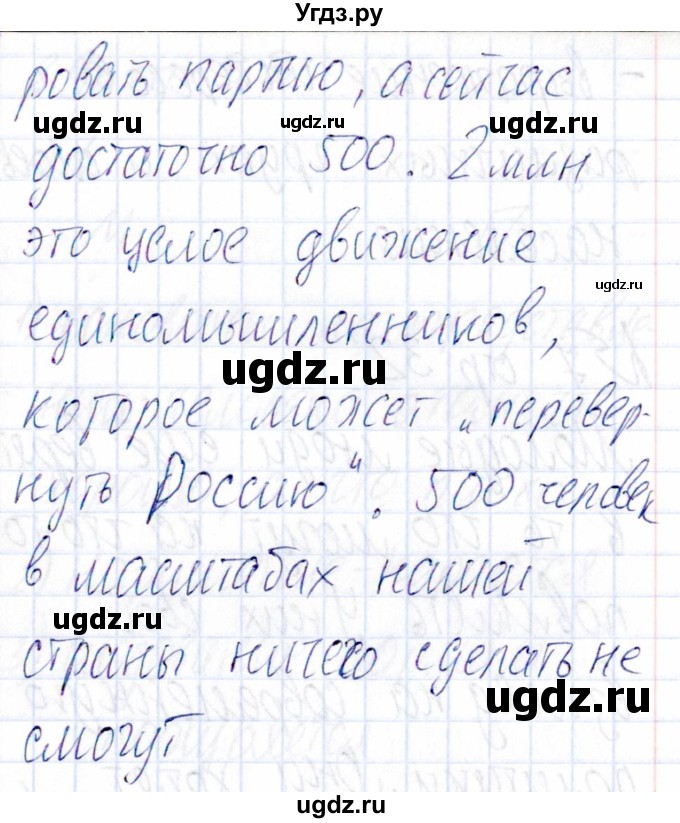 Угдз.ру
ровать партию, а сейчас
ugdz.ru ugdz.ru ugdz.ru
достаточно 500. 2 млн
это целое движение
ugdz.ru
единомышленников,
ugdz.ru
которое может „перевер-
нуть Россию“. 500 человек
в масштабах нашей
ugdz.ru
страны ничего сделать не
ugdz.ru
смогут
ugdz.ru